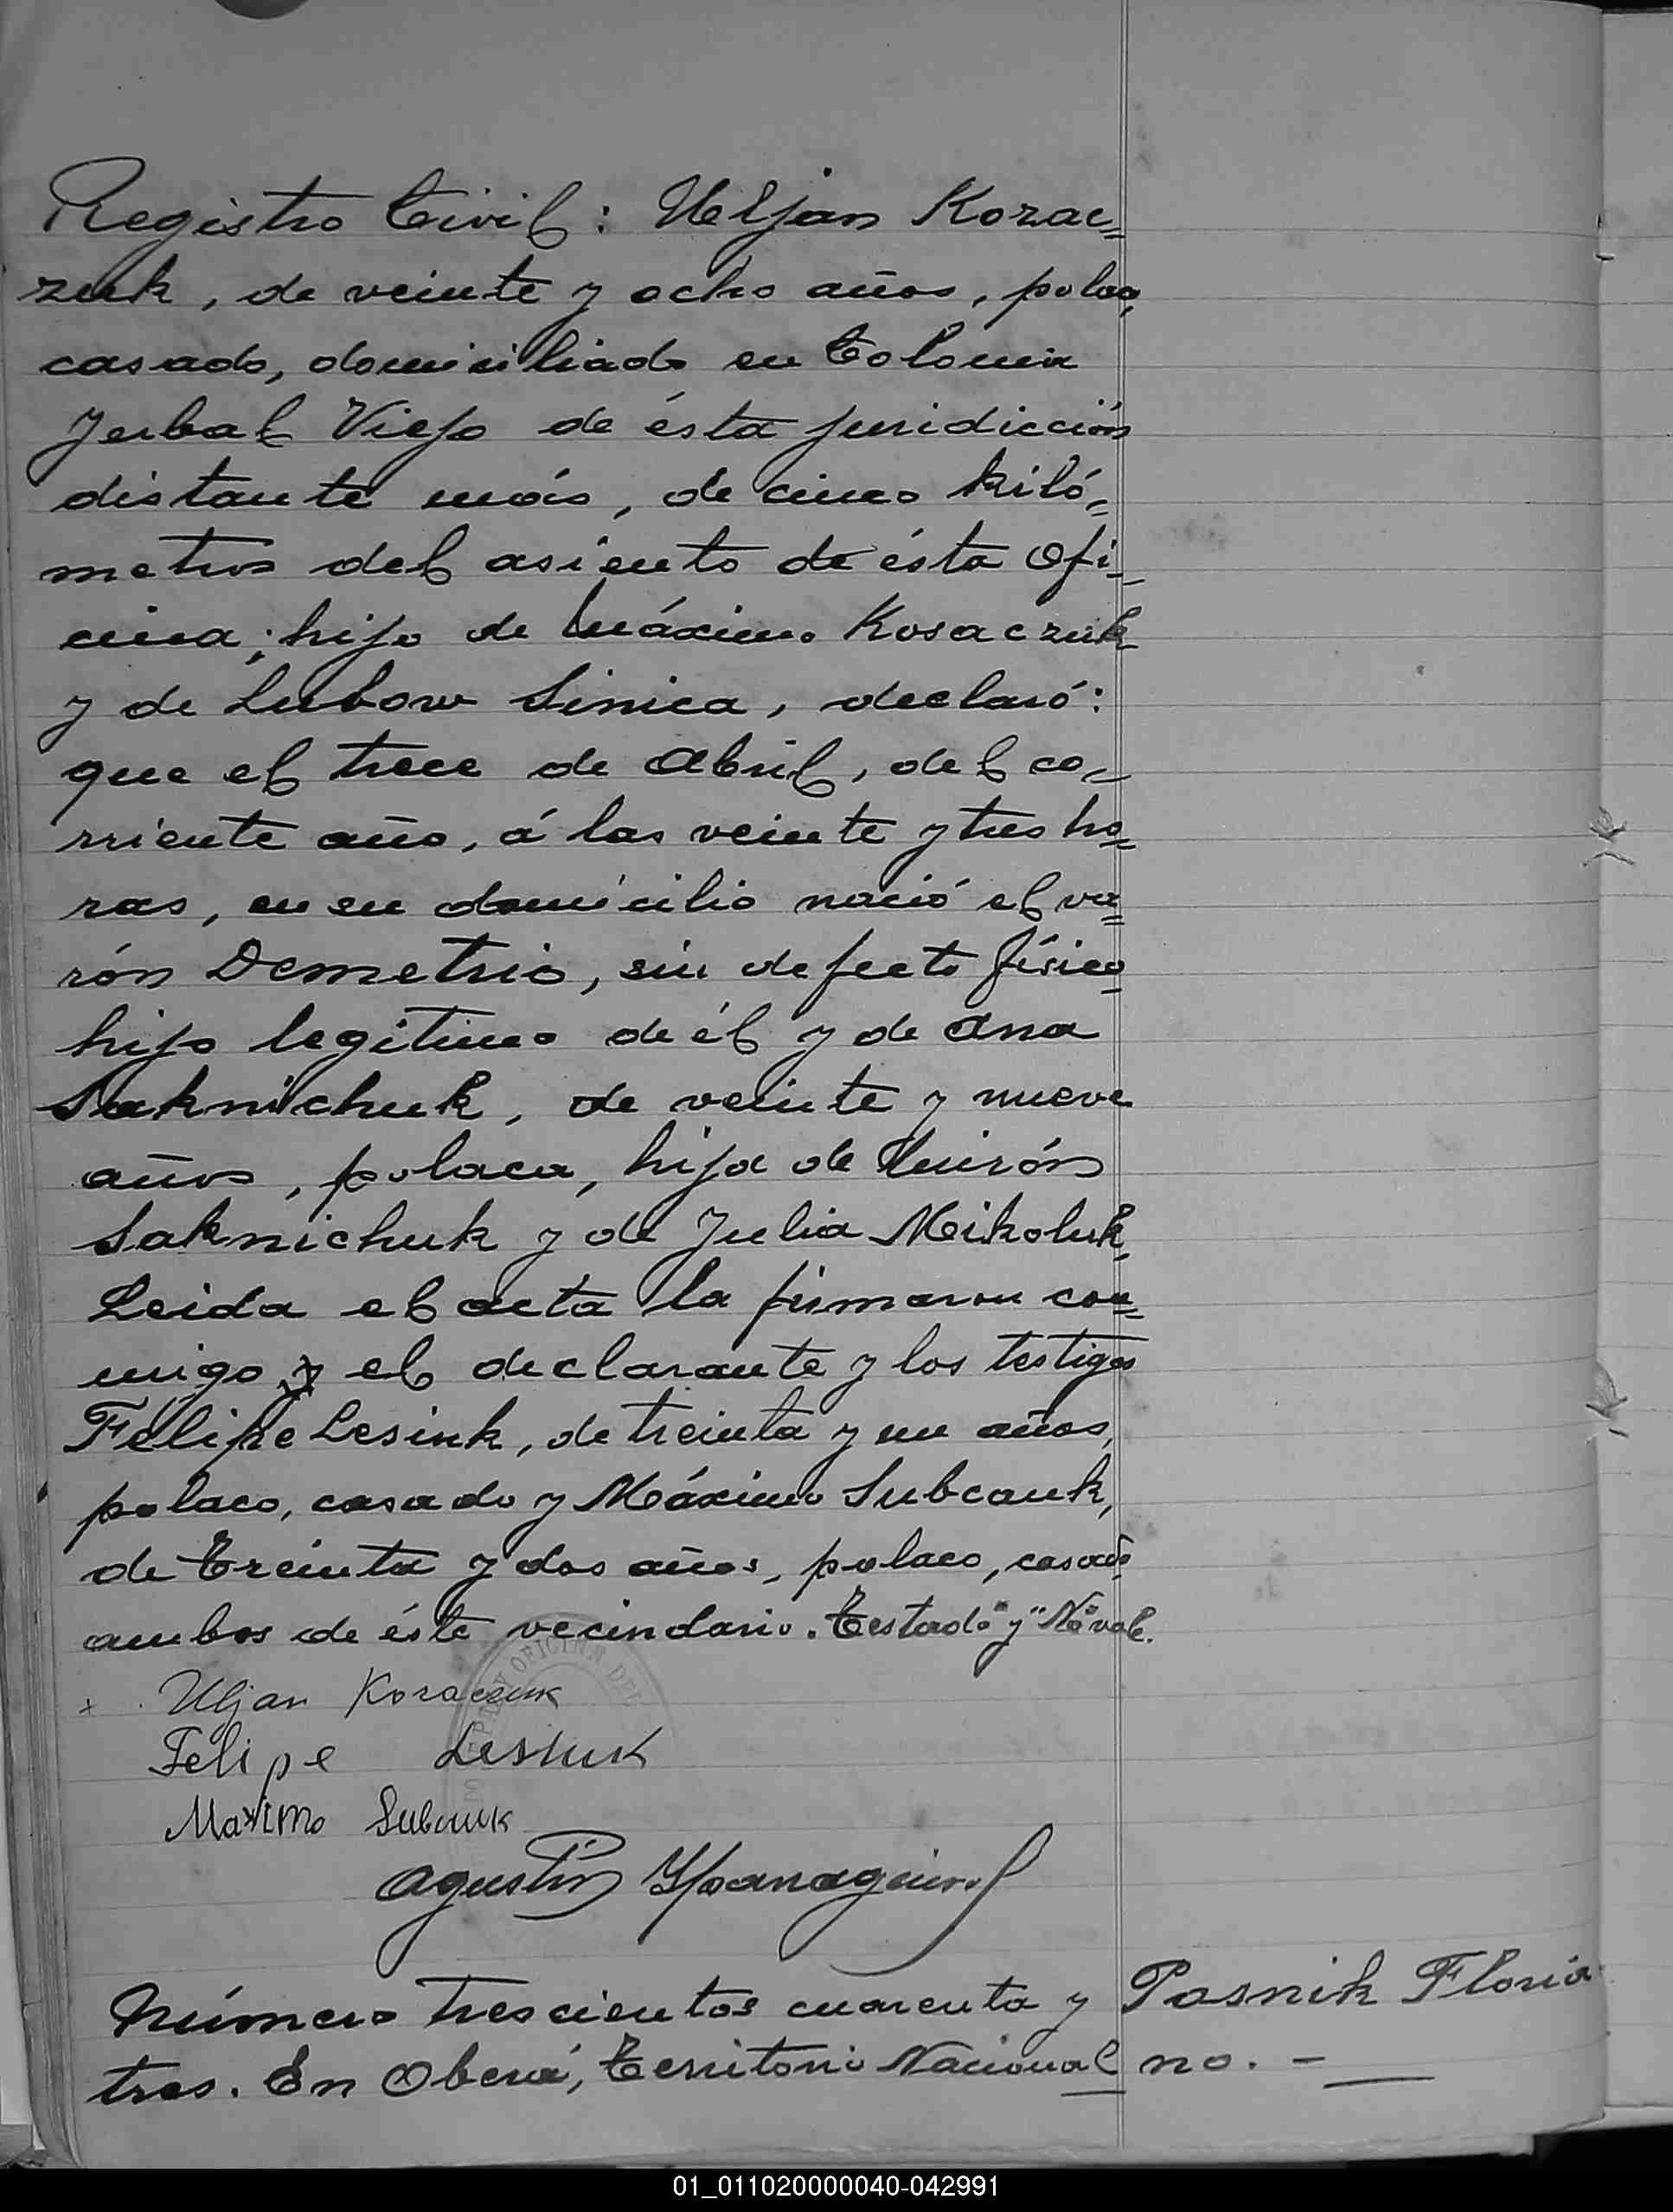 Registro Civil: Uljan Kozac=
zuk, de veinte y ocho años, polaco,
casado, domiciliado en Colonia
Yerbal Viejo de ésta juridicción
distante más, de cinco kiló=
metros del asiento de ésta Ofi=
cina; hijo de Máximo Kosaczuk
y de Lubow Sinica, declaró:
que el trece de Abril, del co=
rriente año, á las veinte y tres ho=
ras, en su domicilio nació el va=
rón Demetrio, sin defecto físico
hijo legítimo de él y de Ana
Saknichuk, de veinte y nueve
años, polaca, hija de Mirón
Saknichuk y de Julia Mikoluk.
Leida el acta la firmaron con=
migo y el declarante y los testigos
Felipe Lesiuk, de treinta y un años,
polaco, casado y Máximo Subcauk,
de treinta y dos años, polaco, casado,
ambos de éste vecindario. Testado "y" No vale.
x Uljan Kozaczuk
Felipe Lesiuk
Maximo
Agustín
Número trescientos cuarenta y
tres. En Oberá, Territorio Nacional
Posnik Floria
no. -
OFICINA DEL
01_011020000040-042991